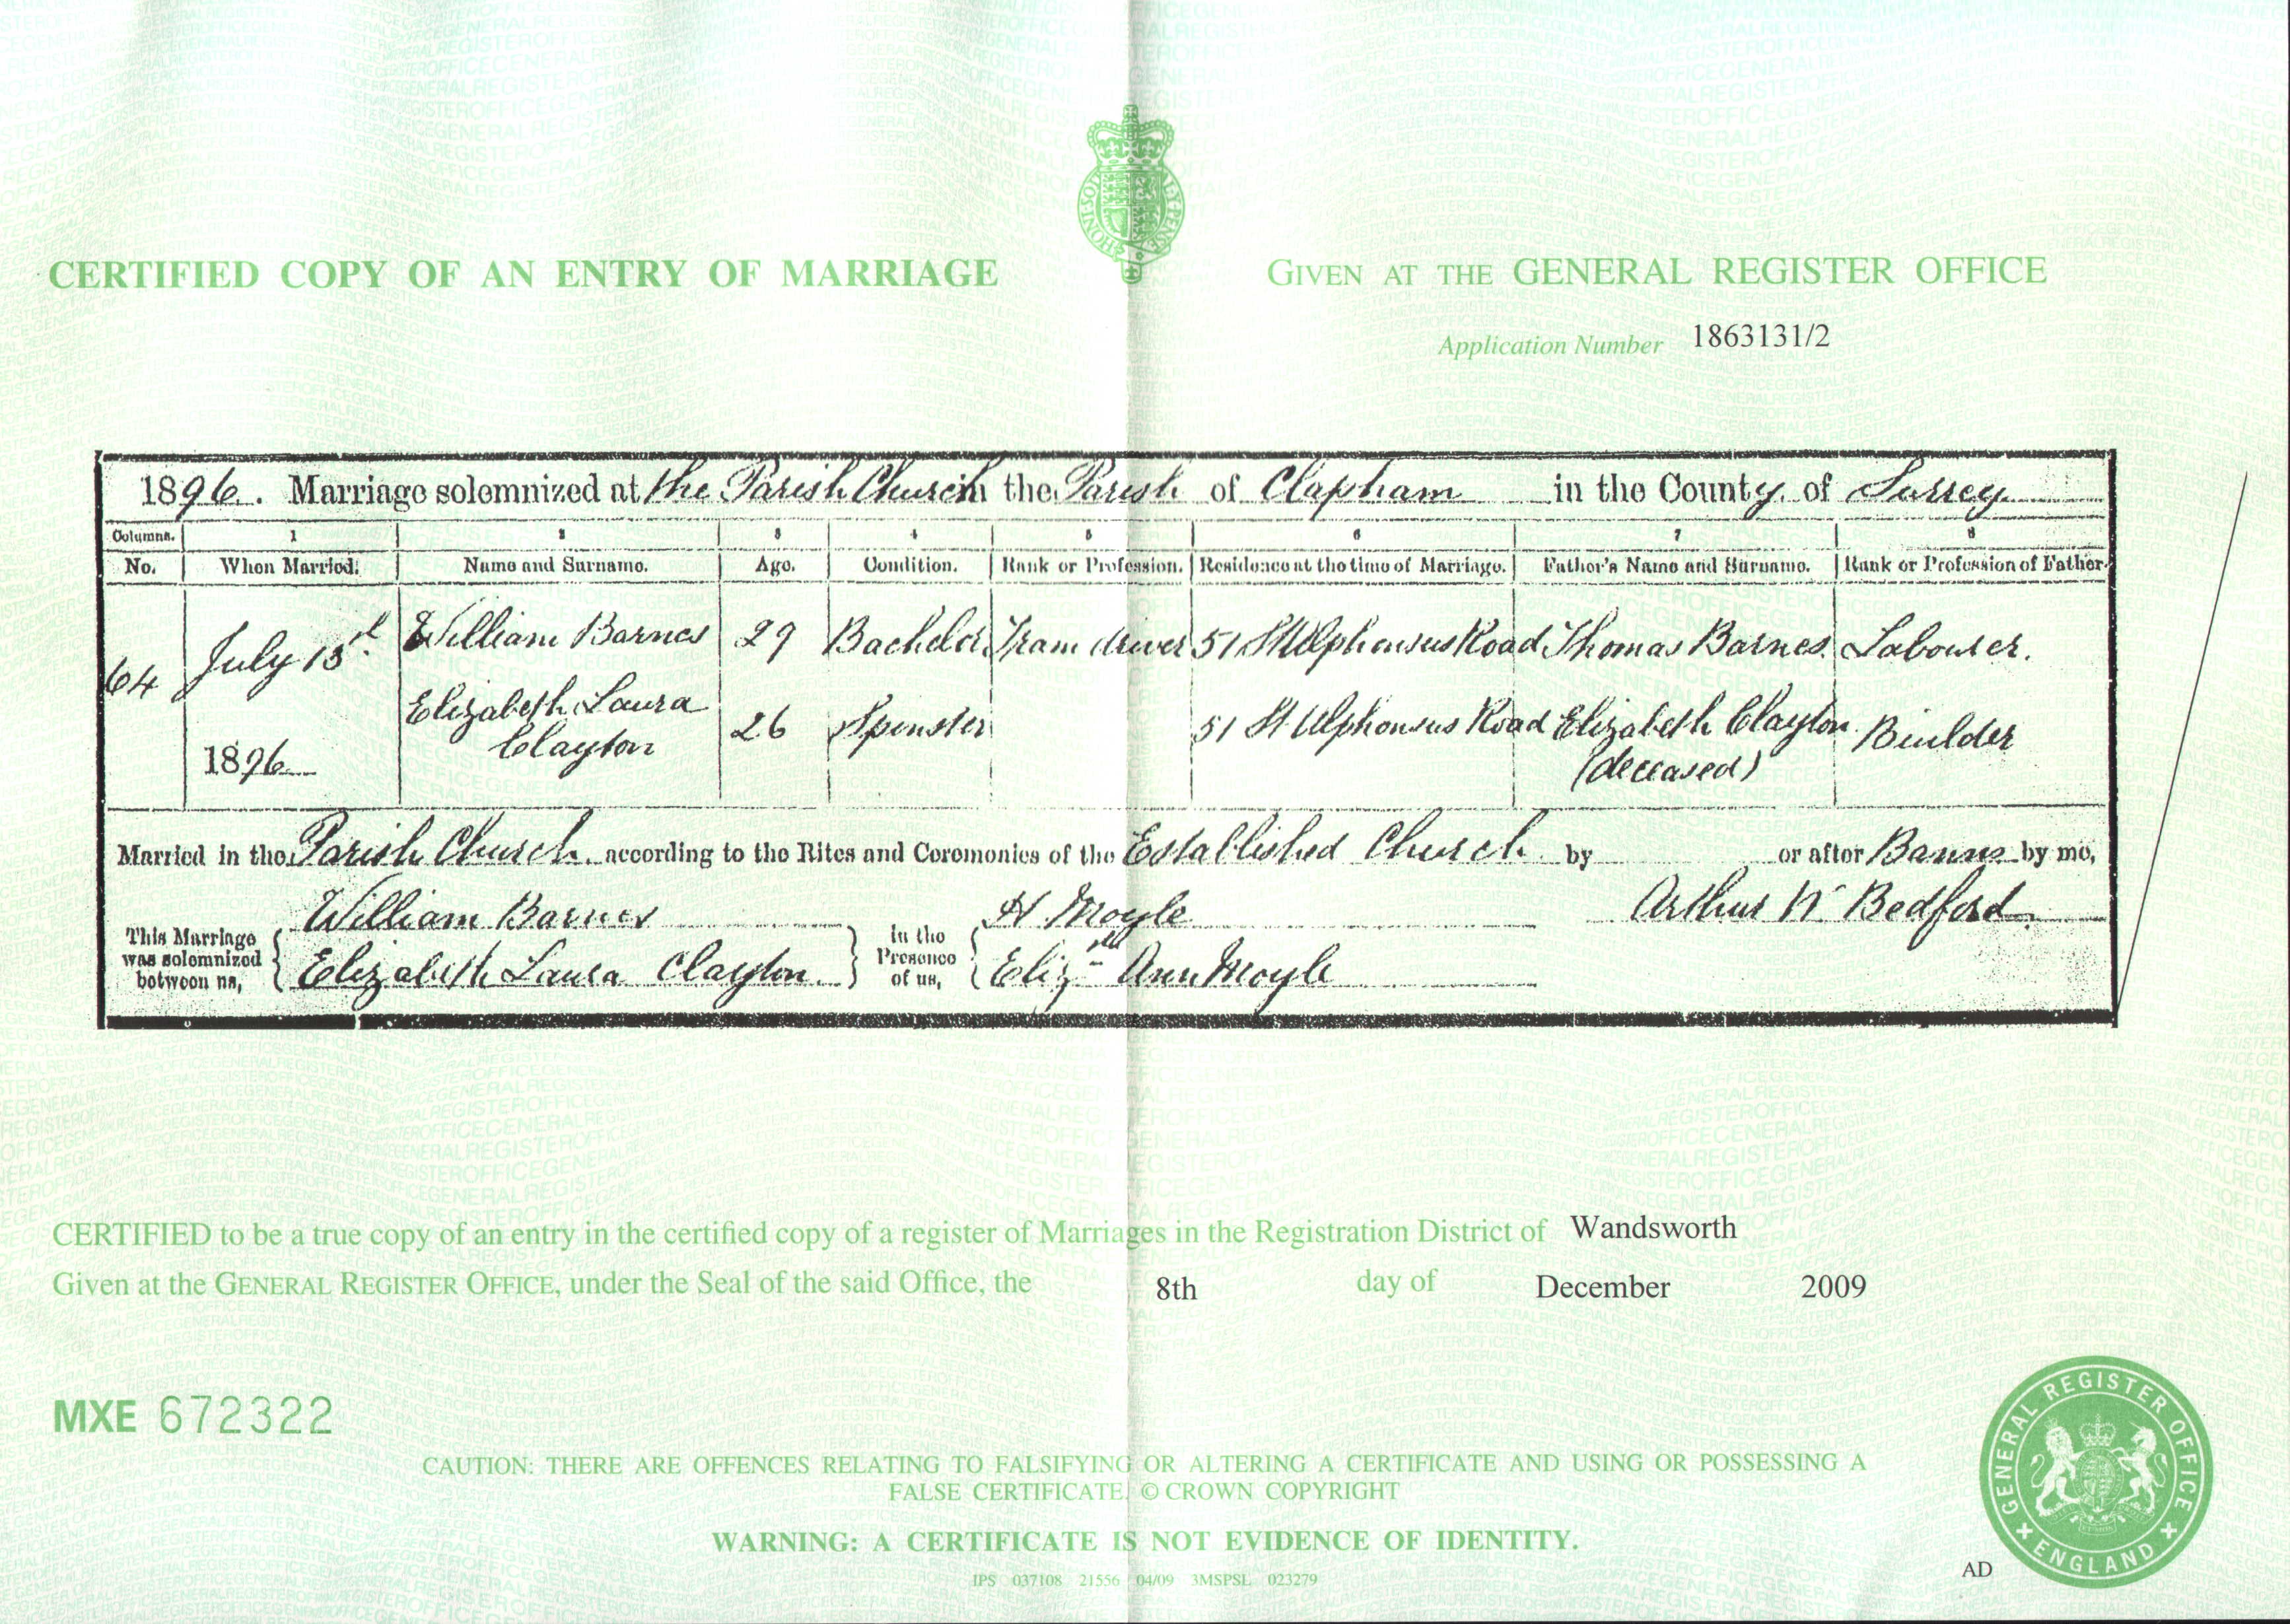 HONI·SOIT QUI MAL·Y·PENSE
CERTIFIED COPY OF AN ENTRY OF MARRIAGE
GIVEN AT THE GENERAL REGISTER OFFICE
Application Number 1863131/2
1896. Marriage solemnized at the Parish Church in the Parish of Clapham in the County of Surrey
Columns. 1 2 3 4 5 6 7 8
No. When Married. Name and Surname. Age. Condition. Rank or Profession. Residence at the time of Marriage. Father's Name and Surname. Rank or Profession of Father.
64 July 13th William Barnes 29 Bachelor Tram driver 51 St Alphonsus Road Thomas Barnes Labourer.
1896 Elizabeth Laura Clayton 26 Spinster 51 St Alphonsus Road Elizabeth Clayton (deceased) Builder
Married in the Parish Church according to the Rites and Ceremonies of the Established Church by or after Banns by me,
This Marriage was solemnized between us, William Barnes Elizabeth Laura Clayton In the Presence of us, H Moyle Elizth Ann Moyle Arthur N Bedford
CERTIFIED to be a true copy of an entry in the certified copy of a register of Marriages in the Registration District of Wandsworth
Given at the GENERAL REGISTER OFFICE, under the Seal of the said Office, the 8th day of December 2009
MXE 672322
CAUTION: THERE ARE OFFENCES RELATING TO FALSIFYING OR ALTERING A CERTIFICATE AND USING OR POSSESSING A
FALSE CERTIFICATE. © CROWN COPYRIGHT
WARNING: A CERTIFICATE IS NOT EVIDENCE OF IDENTITY.
IPS 037108 21556 04/09 3MSPSL 023279
AD
GENERAL REGISTER OFFICE
ENGLAND